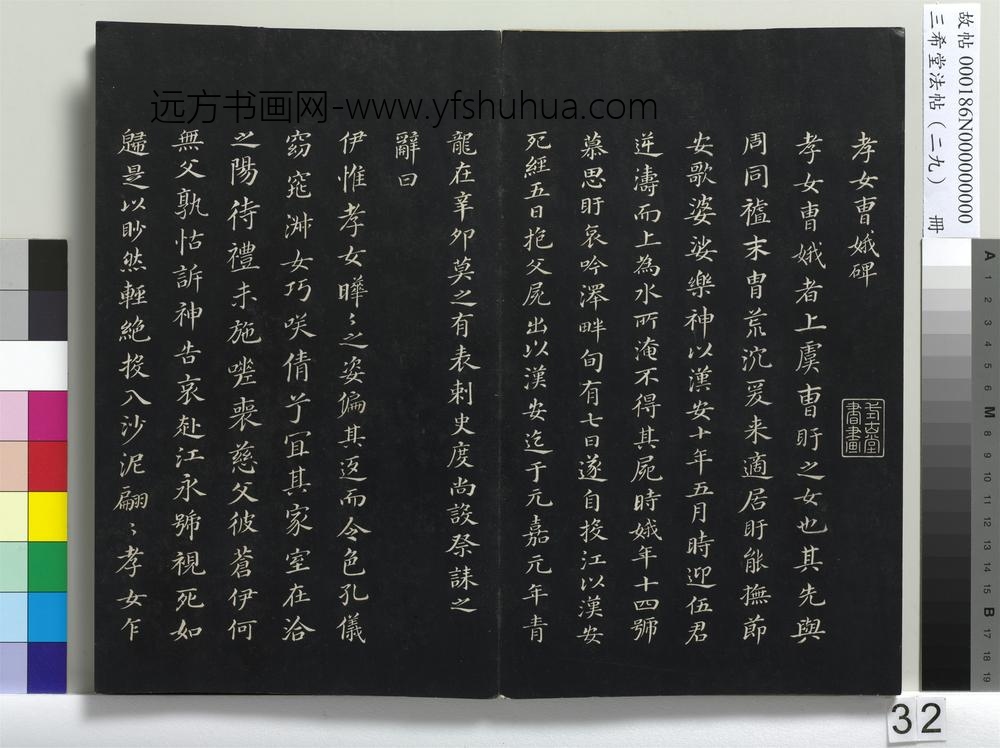 孝女曹娥碑
孝女曹娥者上虞曹盱之女也其先與
周同禮末胄荒沉爰来適居盱能撫節
安歌婆娑樂神以漢安十年五月時迎伍君
逆濤而上為水所淹不得其屍時娥年十四號
慕思盱哀吟澤畔旬有七日遂自投江以漢安
死經五日抱父屍出以漢安迄于元嘉元年青
龍在辛卯莫之有表刺史度尚設祭誄之
辭曰
伊惟孝女曄〻之姿偏其返而令色孔儀
窈窕淑女巧咲倩兮宜其家室在洽
之陽待禮未施嗟喪慈父彼蒼伊何
無父孰怙訴神告哀赴江永號視死如
歸是以眇然輕絶投入沙泥翩〻孝女乍
远方书画网-www.yfshuhua.com
故帖 000186N000000000
三希堂法帖（二九） 冊
32
A 1 2 3 4 5 6 M 8 9 10 11 12 13 14 15 B 17 18 19